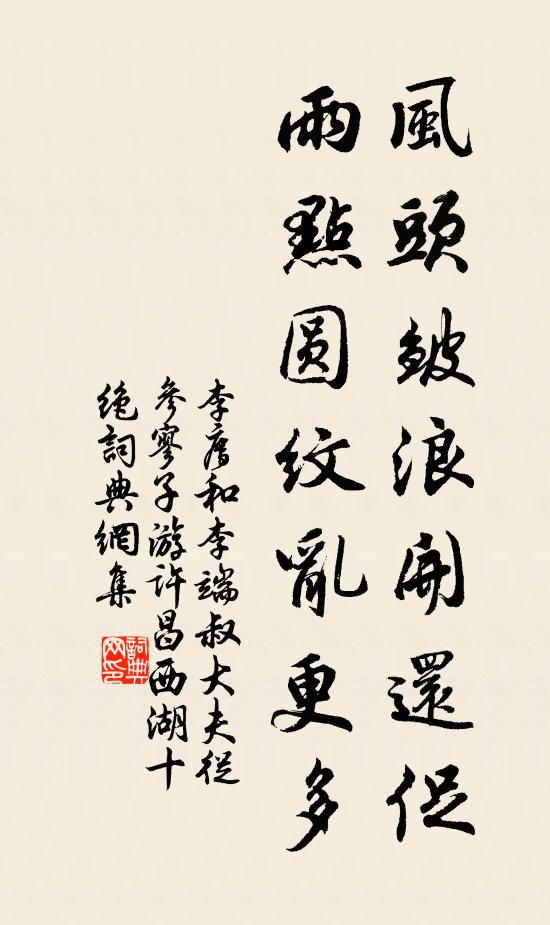 風頭皴浪開還促
雨點圓紋亂更多
李廌和李端叔大夫從
參寥子游許昌西湖十
絕詞典網集
詞典
网印